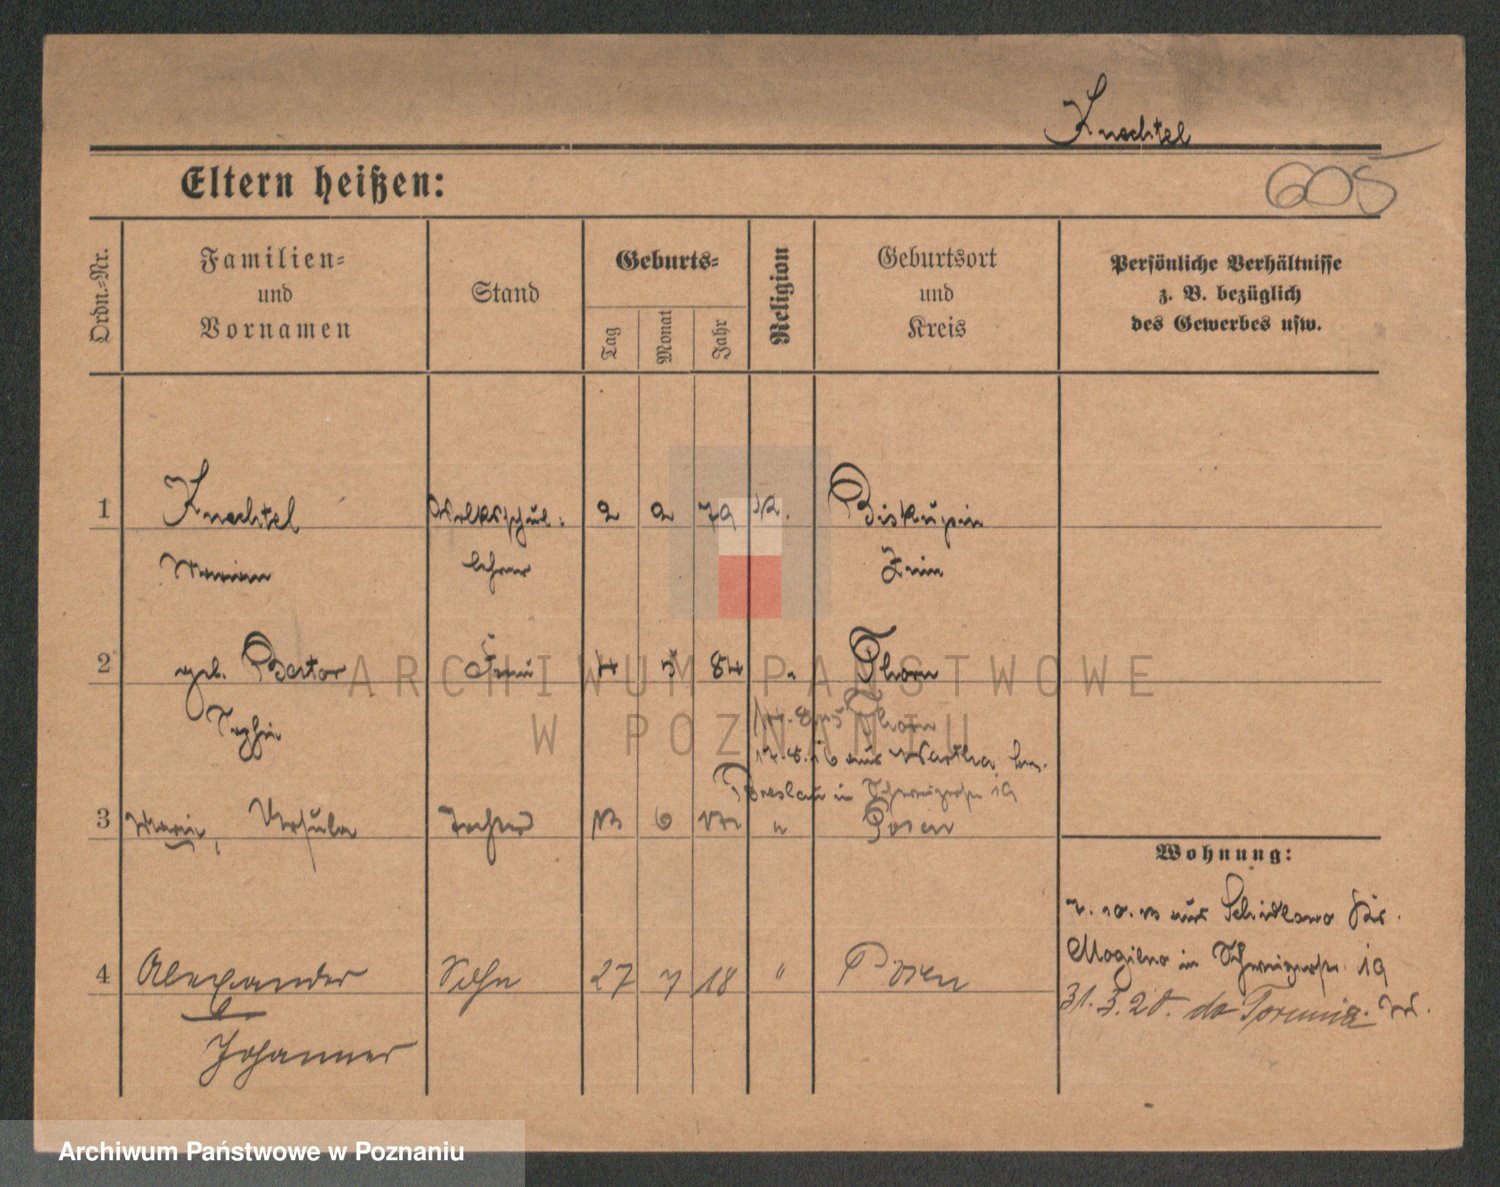 Knechtel
Eltern heißen:
605
Ordn.-Nr.
Familien-
und
Vornamen
Stand
Geburts-
Tag
Monat
Jahr
Religion
Geburtsort
und
Kreis
Persönliche Verhältnisse
z. B. bezüglich
des Gewerbes usw.
1 Knechtel Volksschul- 2 2 79 K. Biskupin
Marian lehrer Znin
2 geb. Bartor Frau 4 5 84 " Thorn
Sophie
Thorn
12.8.16 aus Wartha,
Breslau in 19
3 Maria, Ursula Tochter 13 6 " Posen
Wohnung:
7.10.13 aus Schidlowo Kr.
Mogilno in 19
31.3.20. do Torunia.
4 Alexander Sohn 27 7 18 " Posen
Johannes
ARCHIWUM PAŃSTWOWE
W POZNANIU
Archiwum Państwowe w Poznaniu